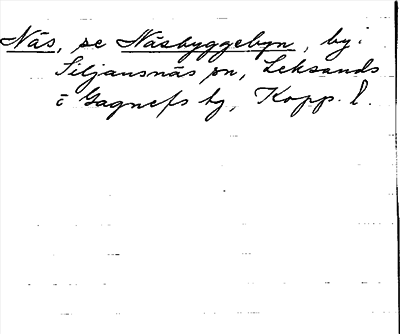 Näs, se Näsbyggebyn, by i
Siljansnäs sn, Leksands
o Gagnefs tg, Kopp. l.